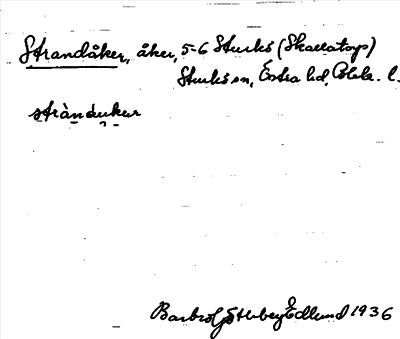 Strandåker, åker, 5-6 Sturkö (Skallatorp)
Sturkö sn, Östra hd, Blek. l.
stràndukar
Barbro Götberg Edlund 1936